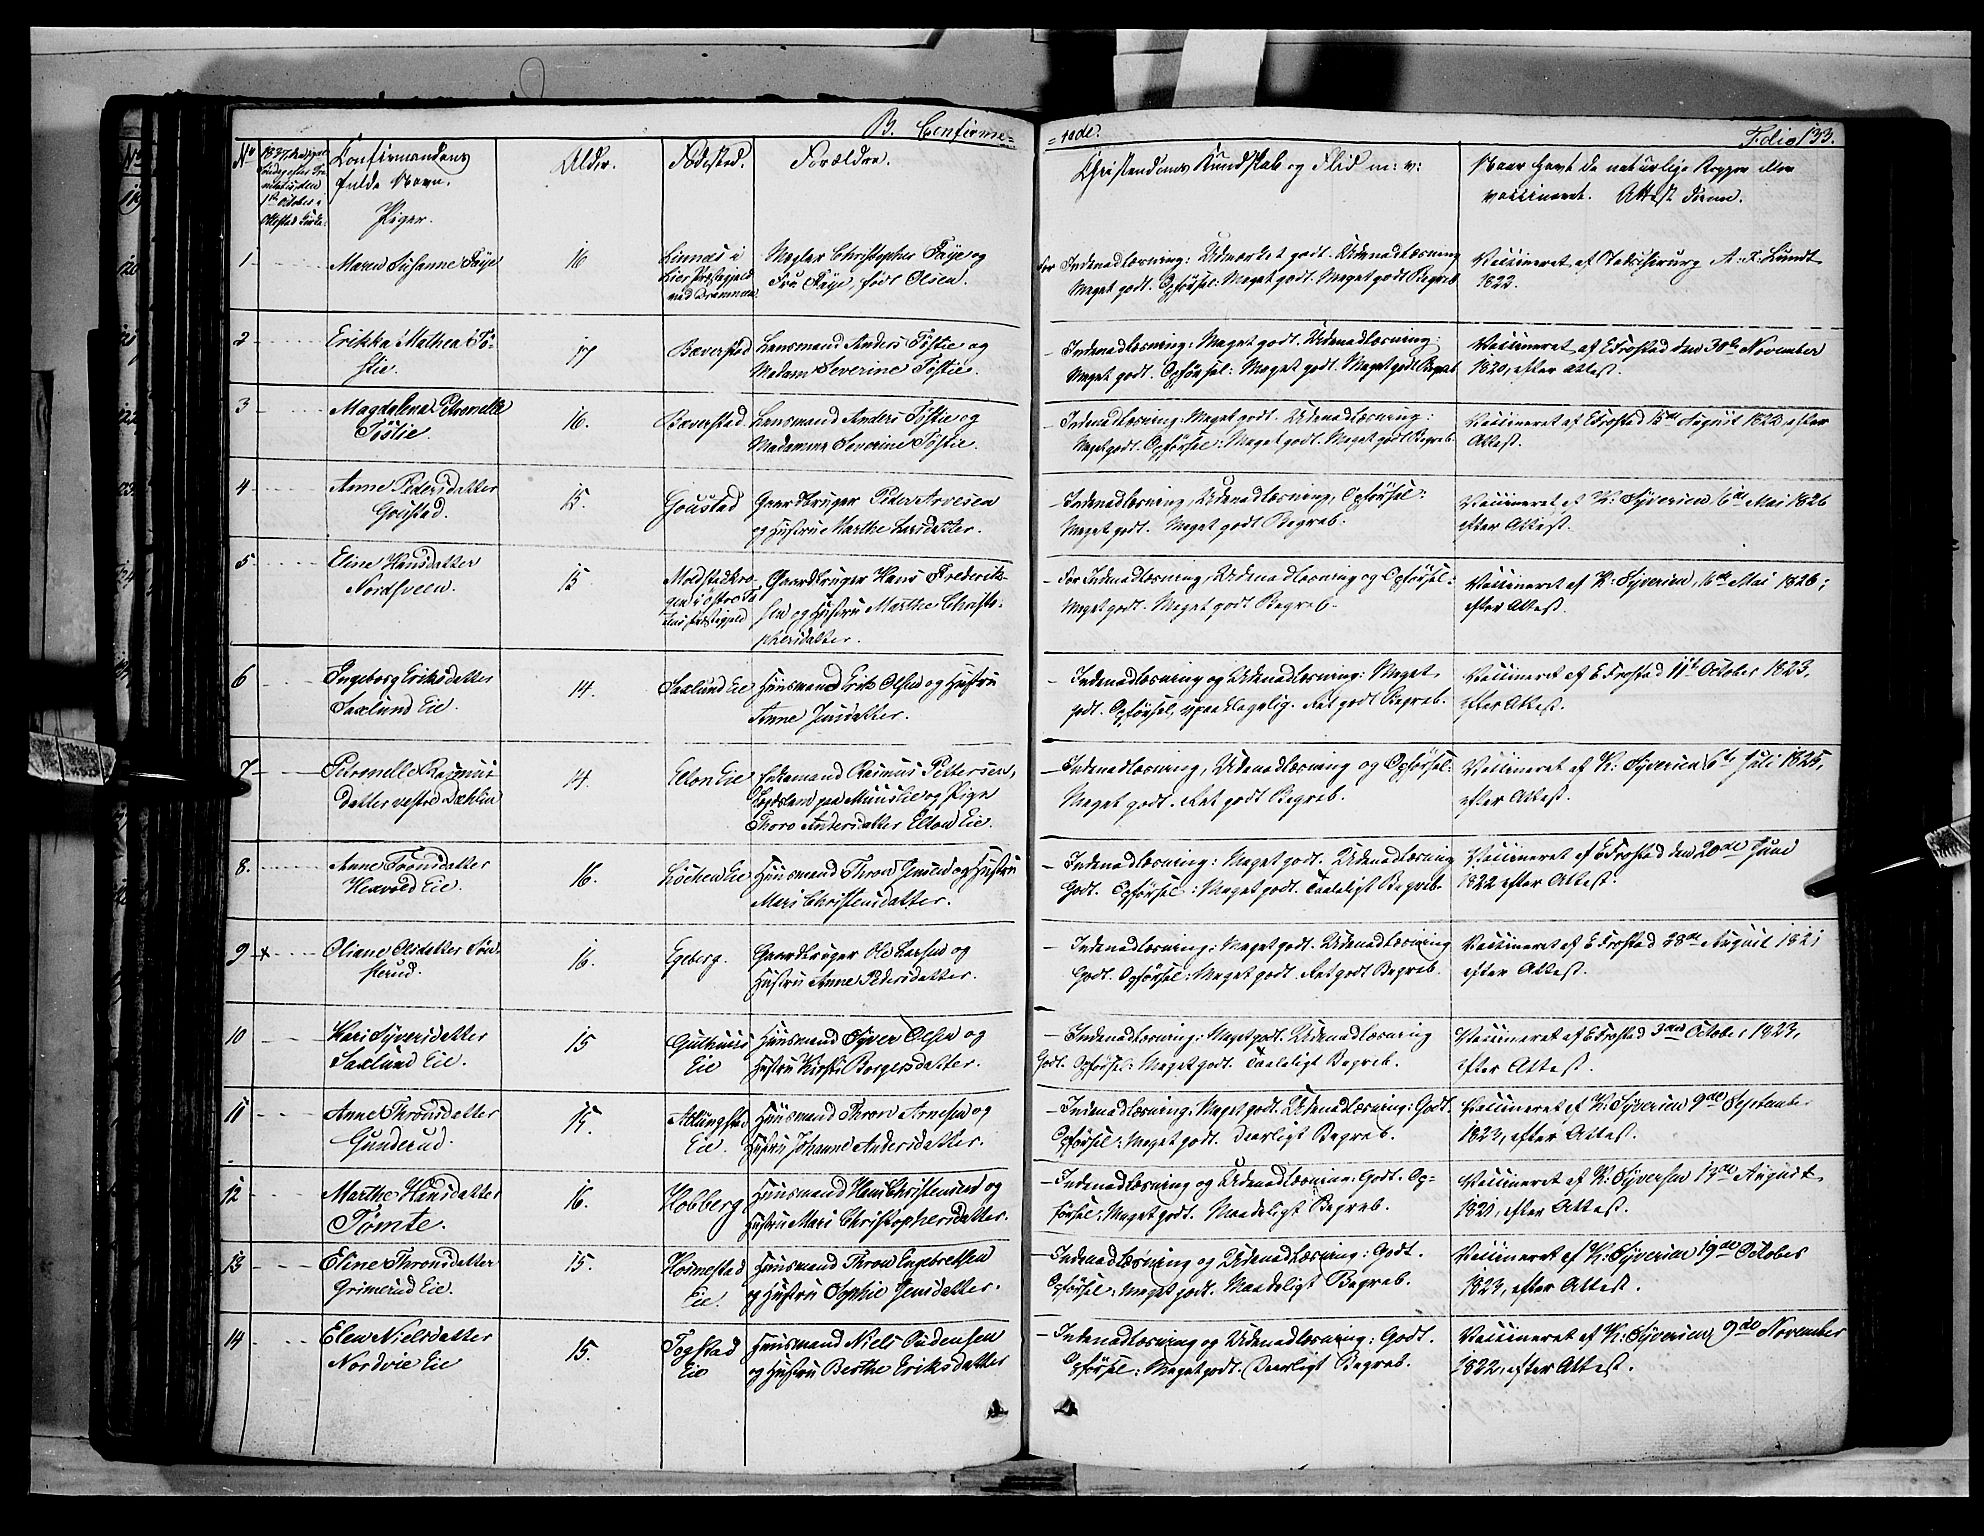 B. Confirme=
=rede.
Folio 133.
No
Confirmandens
fulde Navn.
Piger.
Alder.
Fødested.
Forældre.
Christendoms Kundskab og Flid m: v:
Naar havt de naturlige Kopper eller
vaccineret. Attest derom.
1
Maren Susanne Faÿe
16
Linnæs i
Lier Præstegjeld
ved Drammen
Mægler Christopher Faÿe og
Frue Faÿe, født Olsen.
For Indenadlæsning: Udmærket godt. Udenadlæsning
Meget godt. Opførsel: Meget godt. Meget godt Begreb
Vaccineret af A: F: Lundt
1822.
2
Erikka Mathea Tö-
stie.
17
Bæverstad
Lensmand Anders Töstie og
Madame Severine Töstie.
- Indenadlæsning: Meget godt. Udenadlæsning:
Meget godt. Opførsel: Meget godt. Meget godt Begreb
Vaccineret af E Frostad den 30te November
1820, efter Attest.
3
Magdalena Petronelle
Töstie.
16.
Bæverstad
Lensmand Anders Töstie og
Madamme Severine Töstie.
- Indenadlæsning: Meget godt. Udenadlæsning:
Meget godt. Opførsel: Meget godt. Meget godt Begreb
Vaccineret af E Frostad 15de August 1822 efter
Attest.
4
Anne Pedersdatter
Goüstad.
15.
Goüstad
Gaardbruger Peder Arvesen
og Hustrue Marthe Larsdatter.
- Indenadlæsning, Udenadlæsning, Opførsel:
Meget godt. Meget godt Begreb.
Vaccineret af K: Sÿversen, 6de Mai 1826
efter Attest.
5
Eline Hansdatter
Nordsveen.
15
Gaardbruger Hans Frederik-
sen og Hustru Marthe Christo-
phersdatter.
- For Indenadlæsning, Udenadlæsning og Opførsel:
Meget godt. Meget godt Begreb.
Vaccineret af K: Sÿversen, 6te Mai 1826,
efter Attest.
6
Ingeborg Eriksdatter
Saxlund Eie.
14.
Saxlund Eie
Huusmand Erik Olsen og Hustru
Anne Jensdatter.
- Indenadlæsning og Udenadlæsning: Meget
godt. Opførsel, upaaklagelig. Ret godt Begreb.
Vaccineret af E Frostad 11te October 1823,
efter Attest.
7
Petronelle Rasmus
datter vestre Dæhlin
14.
Elton Eie
Enkemand Rasmus Pettersen,
Logstad paa Muuslie og Pige
Thore Andersdatter Elton Eie.
- Indenadlæsning, Udenadlæsning og Opførsel:
Meget godt. Ret godt Begreb.
Vaccineret af K: Sÿversen 6te Juli 1825,
efter Attest.
8.
Anne Tronsdatter
Hexvold Eie.
16.
Löchen Eie
Huusmand Thron Jensen og Hustru
Mari Christensdatter.
- Indenadlæsning: Meget godt. Udenadlæsning
Godt. Opførsel: Meget godt. Taaleligt Begreb.
Vaccineret af E Frostad den 20de Juni
1822 efter Attest.
9
Oliane Olsdatter Sön-
sterud.
16.
Egeberg.
Gaardbruger Ole Larsen og
Hustru Anne Pedersdatter.
- Indenadlæsning: Meget godt. Udenadlæsning
Godt. Opførsel: Meget godt. Ret godt Begreb.
Vaccineret af E Frostad 28de August 1821
efter Attest.
10
Kari Sÿversdatter
Saxlund Eie.
15
Guthuus
Eie
Huusmand Syver Olsen og
Hustru Kirsti Borgersdatter.
- Indenadlæsning: Meget godt. Udenadlæsning
Godt. Opførsel: Meget godt. Taaleligt Begreb.
Vaccineret af E Frostad 3die October 1823,
efter Attest.
11
Anne Thronsdatter
Gunderud.
15.
Alungstad
Eie.
Huusmand Thron Arnesen og
Hustru Johanne Andersdatter.
- Indenadlæsning: Meget godt. Udenadlæsning: Godt.
Opførsel: Meget godt. Daarligt Begreb.
Vaccineret af K: Sÿversen 9de September
1823, efter Attest.
12
Marthe Hansdatter
Tömte.
16.
Kobberg
Huusmand Hans Christensen og
Hustru Mari Christophersdatter.
- Indenadlæsning og Udenadlæsning: Godt. Op-
førsel: Meget godt. Maadeligt Begreb.
Vaccineret af K: Sÿversen 14de August
1821, efter Attest.
13
Eline Thronsdatter
Grimerud Eie.
15.
Hörnestad
Eie.
Huusmand Thron Engebretsen
og Hustru Sophie Jensdatter.
- Indenadlæsning og Udenadlæsning: Godt.
Opførsel: Meget godt. Maadeligt Begreb.
Vaccineret af K: Sÿversen 19de October
1823, efter Attest.
14
Elen Nielsdatter
Nordvie Eie
15.
Togstad
Eie
Huusmand Niels Audensen
og Hustru Berthe Eriksdatter
- Indenadlæsning og Udenadlæsning: Godt.
Opførsel: Meget godt. Daarligt Begreb.
Vaccineret af K: Sÿversen, 9de November
1822, efter Attest.